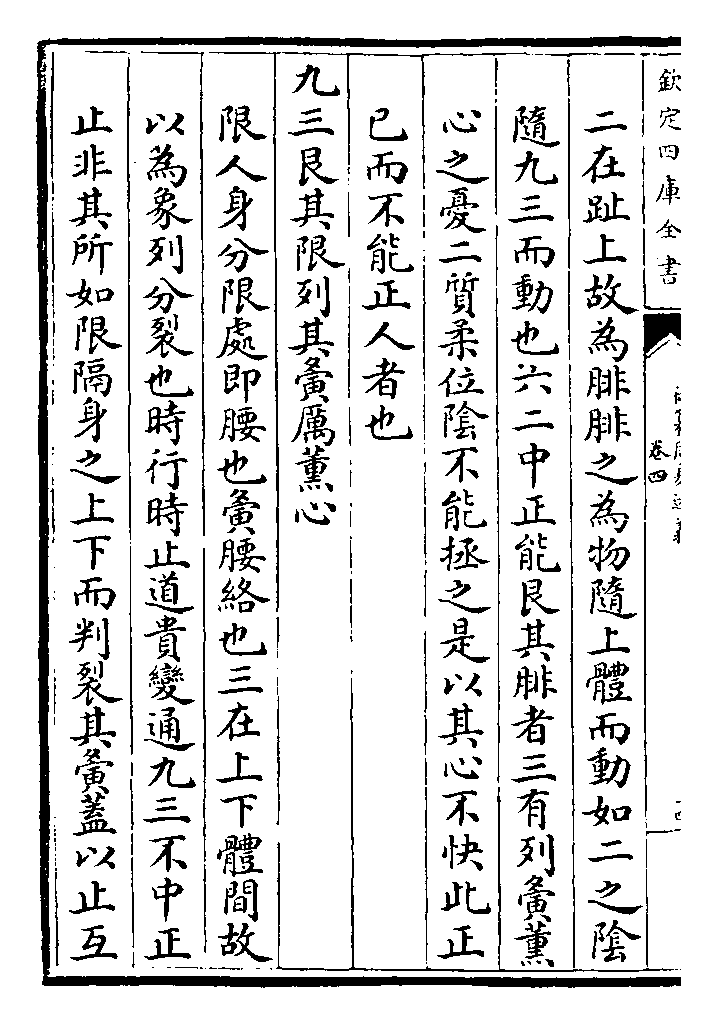 欽定四庫全書
卷四
二在趾上故為腓腓之為物隨上體而動如二之陰
隨九三而動也六二中正能艮其腓者三有列夤薰
心之憂二質柔位陰不能拯之是以其心不快此正
已而不能正人者也
九三艮其限列其夤厲薰心
限人身分限處即腰也夤腰絡也三在上下體間故
以為象列分裂也時行時止道貴變通九三不中正
止非其所如限隔身之上下而判裂其夤蓋以止互